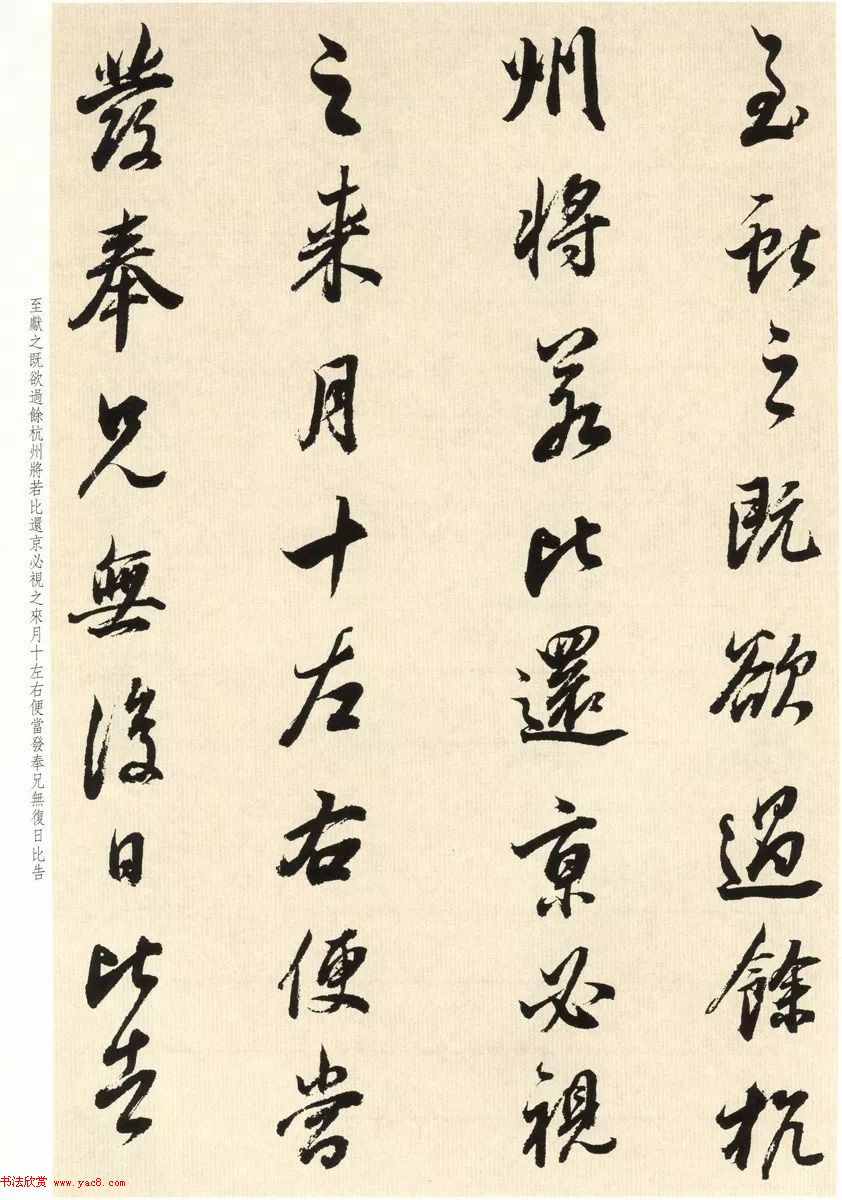 至獻之既欲過餘杭
州將若比還京必視
之來月十左右便當
發奉兄無復日比告
至獻之既欲過餘杭州將若比還京必視之來月十左右便當發奉兄無復日比告
书法欣赏 www.yac8.com